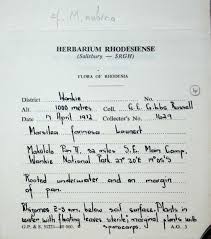 cf. M. nubica
HERBARIUM RHODESIENSE
(Salisbury — SRGH)
FLORA OF RHODESIA
District Wankie No.
Alt. 1000 metres Coll. G.E. Gibbs Russell
Date 17 April 1972 Collector's No. 1629
Marsilea Launert
Makololo Pan II, 32 miles S.E. Main Camp,
Wankie National Park
Rooted underwater and on margin
of pan.
Rhizomes 2-3 cm. below soil surface. Plants in
water with floating leaves sterile; marginal plants with
sporocarps.
G.P. & S. A.O. 3